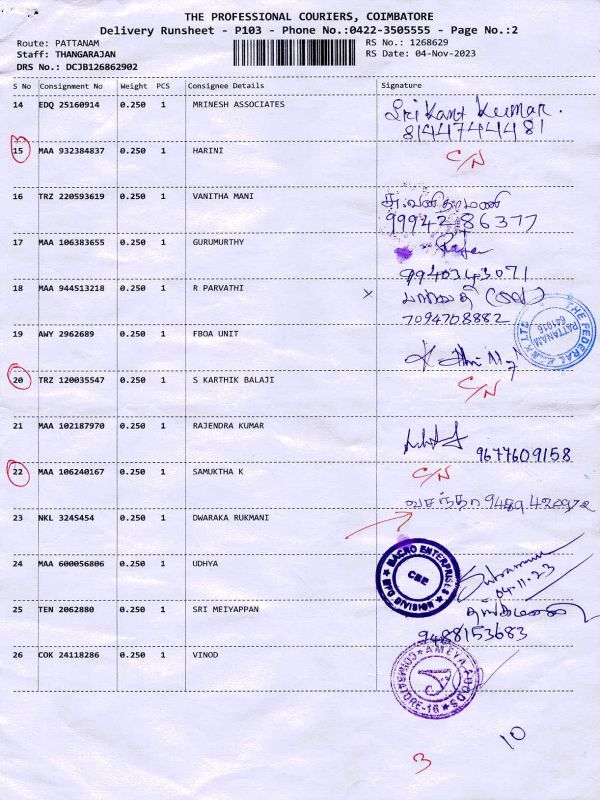 THE PROFESSIONAL COURIERS, COIMBATORE
Delivery Runsheet - P103 - Phone No.:0422-3505555 - Page No.:2
Route: PATTANAM RS No.: 1268629
Staff: THANGARAJAN RS Date: 04-Nov-2023
DRS No.: DCJB126862902
S No Consignment No Weight PCS Consignee Details Signature
14 EDQ 25160914 0.250 1 MRINESH ASSOCIATES Srikant Kumar.
8144744481
15 MAA 932384837 0.250 1 HARINI C/N
16 TRZ 220593619 0.250 1 VANITHA MANI சு.வனிதாமணி
99942 86377
17 MAA 106383655 0.250 1 GURUMURTHY
9940343071
18 MAA 944513218 0.250 1 R PARVATHI x பார்வதி
7094708882
19 AWY 2962689 0.250 1 FBOA UNIT
THE FEDERAL BANK LTD
PATTANAM
641016
20 TRZ 120035547 0.250 1 S KARTHIK BALAJI C/N
21 MAA 102187970 0.250 1 RAJENDRA KUMAR 9677609158
22 MAA 106240167 0.250 1 SAMUKTHA K C/N
23 NKL 3245454 0.250 1 DWARAKA RUKMANI வசந்தா
24 MAA 600056806 0.250 1 UDHYA MACRO ENTERPRISES
CBE
MFG DIVISION
04.11.23
25 TEN 2062880 0.250 1 SRI MEIYAPPAN
9488153683
26 COK 24118286 0.250 1 VINOD AMEYA FOODS
COIMBATORE-16
10
3